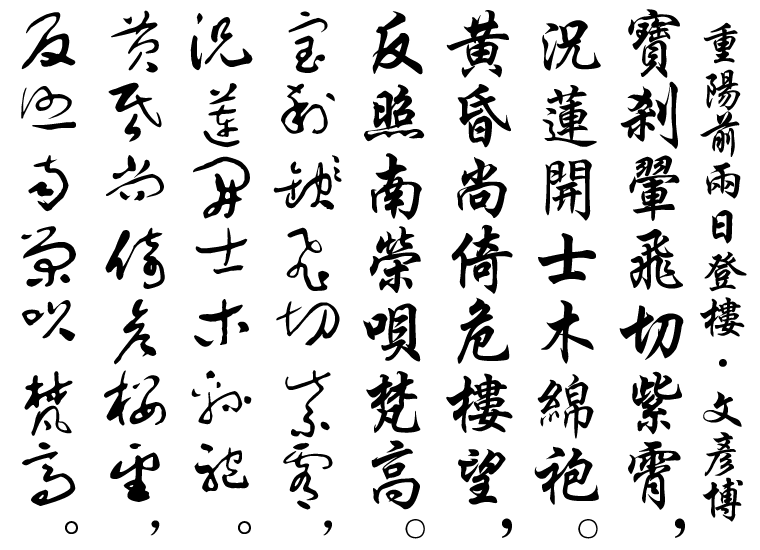 重陽前兩日登樓·文彥博
寶剎翬飛切紫霄，
況蓮開士木綿袍。
黃昏尚倚危樓望，
反照南榮唄梵高。
寶剎翬飛切紫霄，
況蓮開士木綿袍。
黃昏尚倚危樓望，
反照南榮唄梵高。